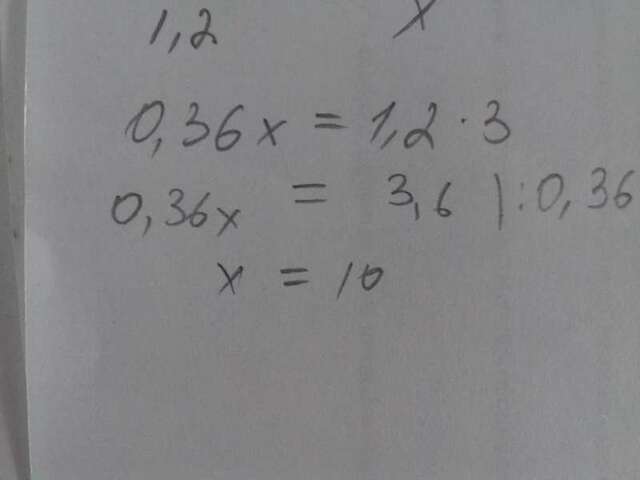 1,2 x
0,36x = 1,2 · 3
0,36x = 3,6 | : 0,36
x = 10